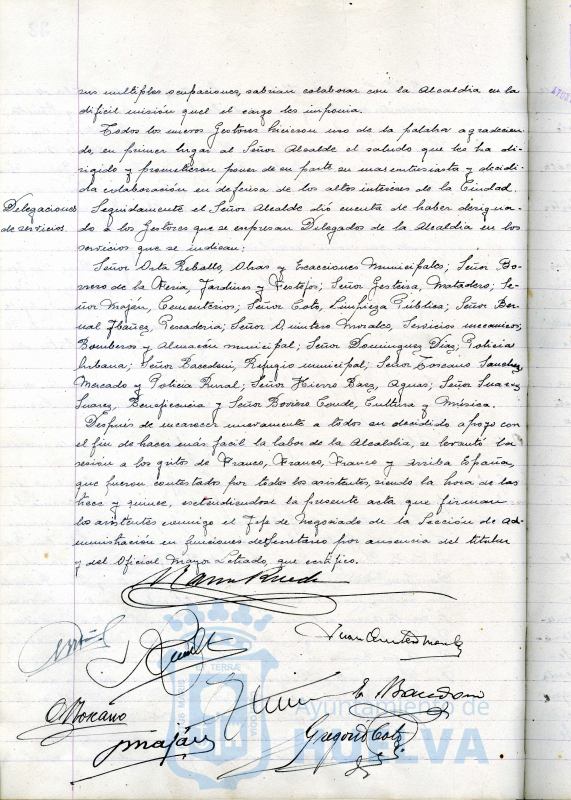 sus multiples ocupaciones, sabrian colaborar con la Alcaldia en la
dificil misión que el cargo les imponia.
Todos los nuevos Gestores hicieron uso de la palabra agradecien-
do, en primer lugar al Señor Alcalde el saludo que les ha di-
rigido y prometieron poner de su parte su mas entusiasta y decidi-
da colaboración en defensa de los altos intereses de la Ciudad.
Delegaciones
de servicios.
Seguidamente el Señor Alcalde dió cuenta de haber designa-
do a los Gestores que se expresan Delegados de la Alcaldia en los
servicios que se indican:
Señor Orta Rebollo, Obras y Exacciones Municipales; Señor Bo-
rrero de la Feria, Jardines y Festejos; Señor Matadero; Se-
ñor Moján, Cementerios; Señor Coto, Limpieza Pública; Señor Ber-
nal Ibañez, Pescaderia; Señor Quintero Morales, Servicios mecanicos,
Bomberos y Almacén municipal; Señor Dominguez Diaz, Policia
Urbana; Señor Bacedoni, Refugio municipal; Señor Toscano Sanchez,
Mercado y Policia Rural; Señor Hierro Baez, Aguas; Señor Suarez
Suarez, Beneficencia y Señor Conde, Cultura y Música.
Después de encarecer nuevamente a todos su decidido apoyo con
el fin de hacer más facil la labor de la Alcaldia, se levantó la
sesión a los gritos de Franco, Franco, Franco y Arriba España,
que fueron contestados por todos los asistentes, siendo la hora de las
trece y quince, extendiendose la presente acta que firman
los asistentes conmigo el Jefe de Negociado de la Sección de Ad-
ministración en funciones de Secretario por ausencia del titular
y del Oficial Mayor Letrado, que certifico.
Juan Quintero Morales
E. Bacedoni
Toscano
Moján
Gregorio Coto
Ayuntamiento de
HUELVA